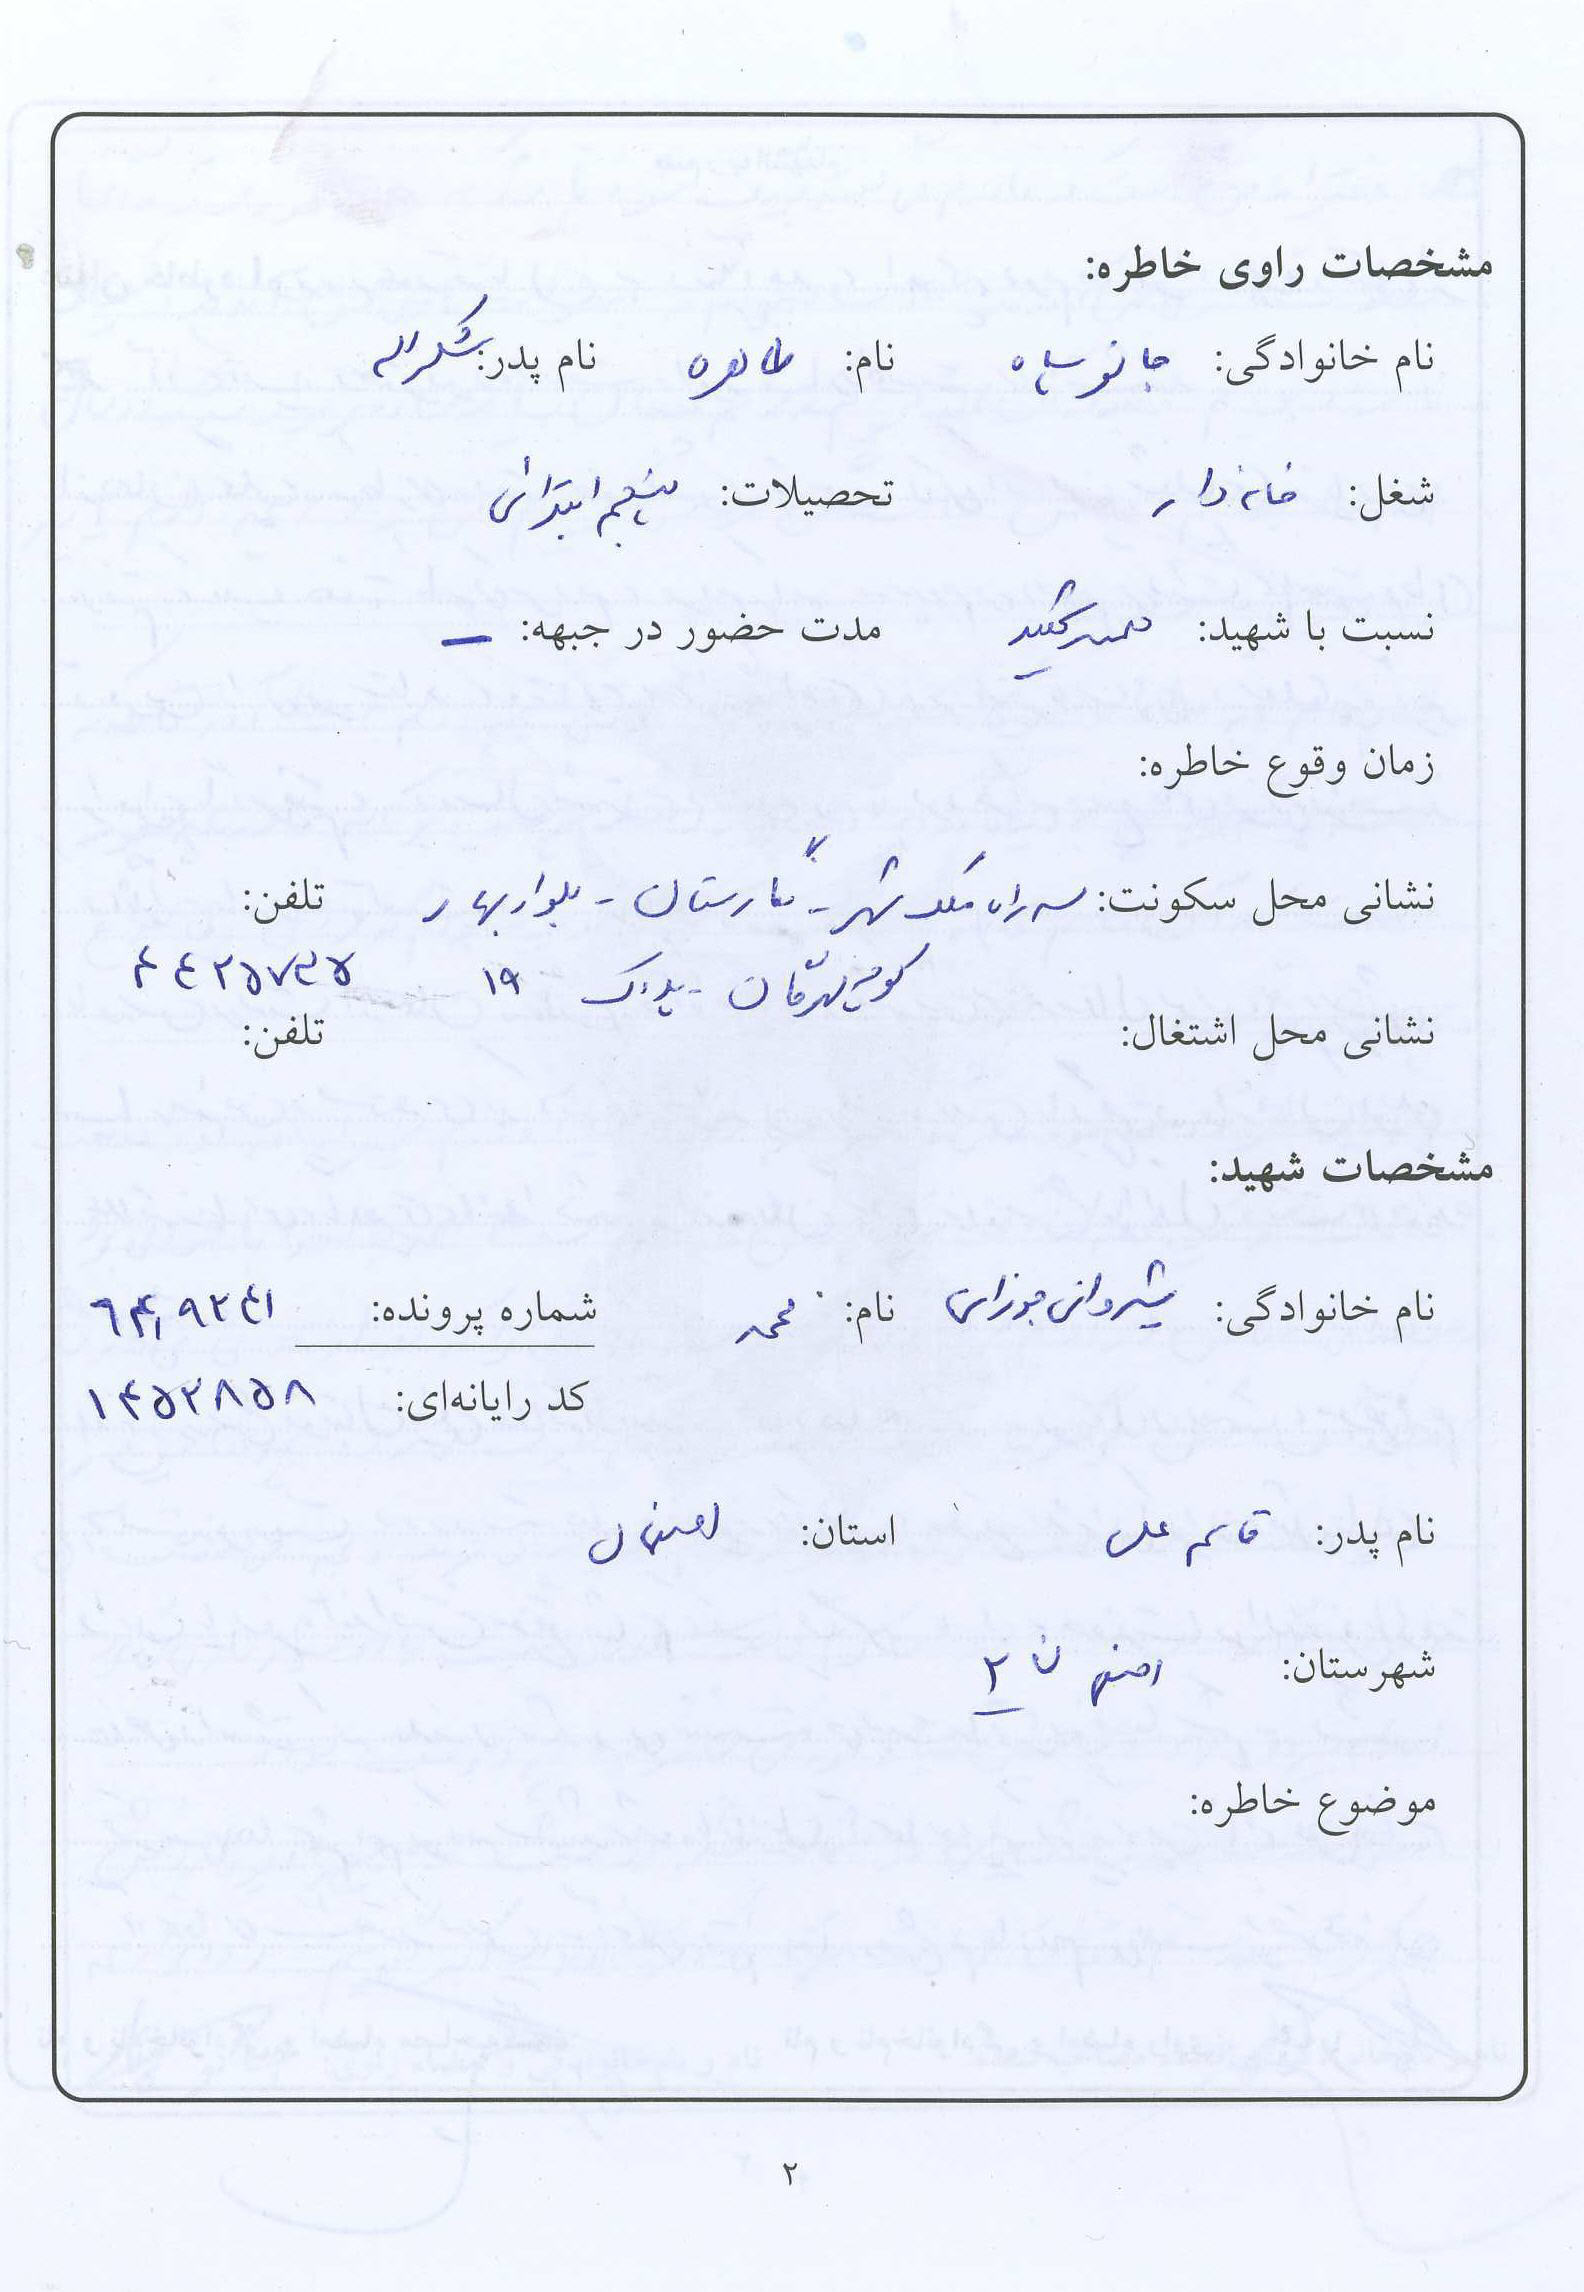 مشخصات راوی خاطره:
نام خانوادگی: جانوسپاه نام: طاهره نام پدر: شکراله
شغل: خانه دار تحصیلات: پنجم ابتدائی
نسبت با شهید: همسر شهید مدت حضور در جبهه: ــ
زمان وقوع خاطره:
نشانی محل سکونت: سه راه ملک شهر - نگارستان - بلوار بهار تلفن:
کوی - پلاک ۱۹ ۴۴۲۵۷۳۵
نشانی محل اشتغال: تلفن:
مشخصات شهید:
نام خانوادگی: شیروانی جوزانی نام: محمد شماره پرونده:
کد رایانه‌ای: ۱۴۵۲۸۵۸
نام پدر: قاسم علی استان: اصفهان
شهرستان: اصفهان ۲
موضوع خاطره:
۲